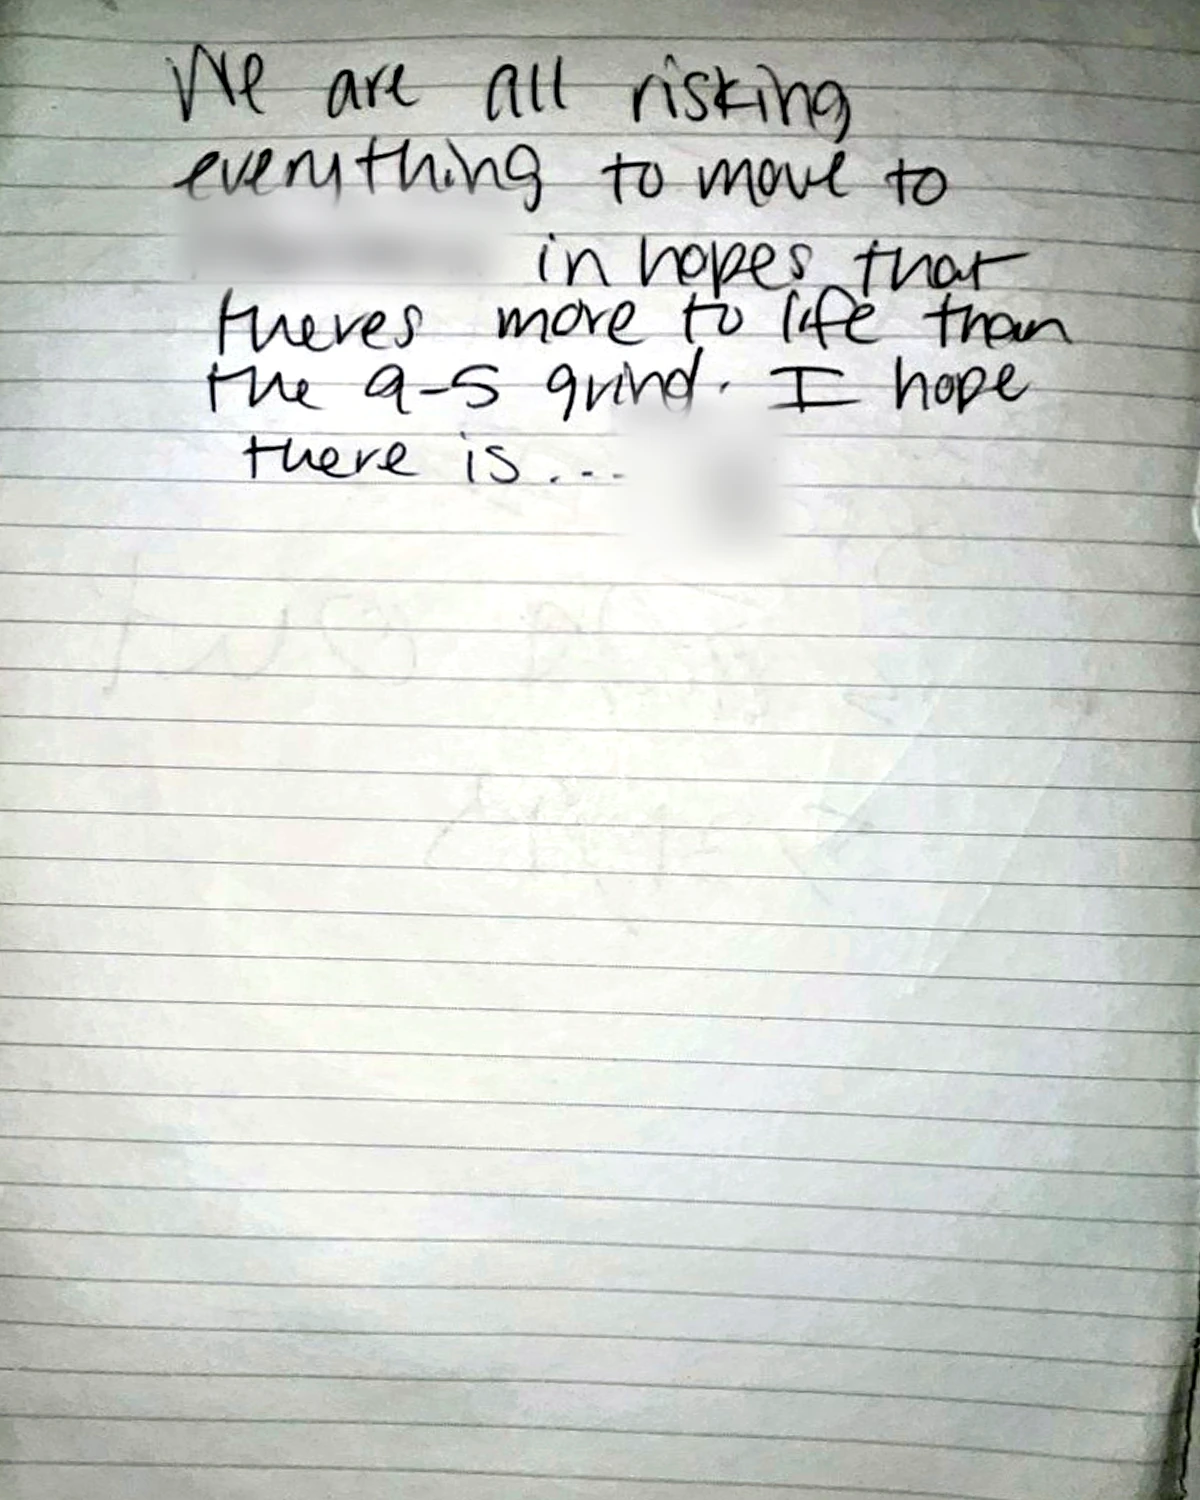 We are all risking
everything to move to
in hopes that
theres more to life than
the 9-5 grind. I hope
there is...